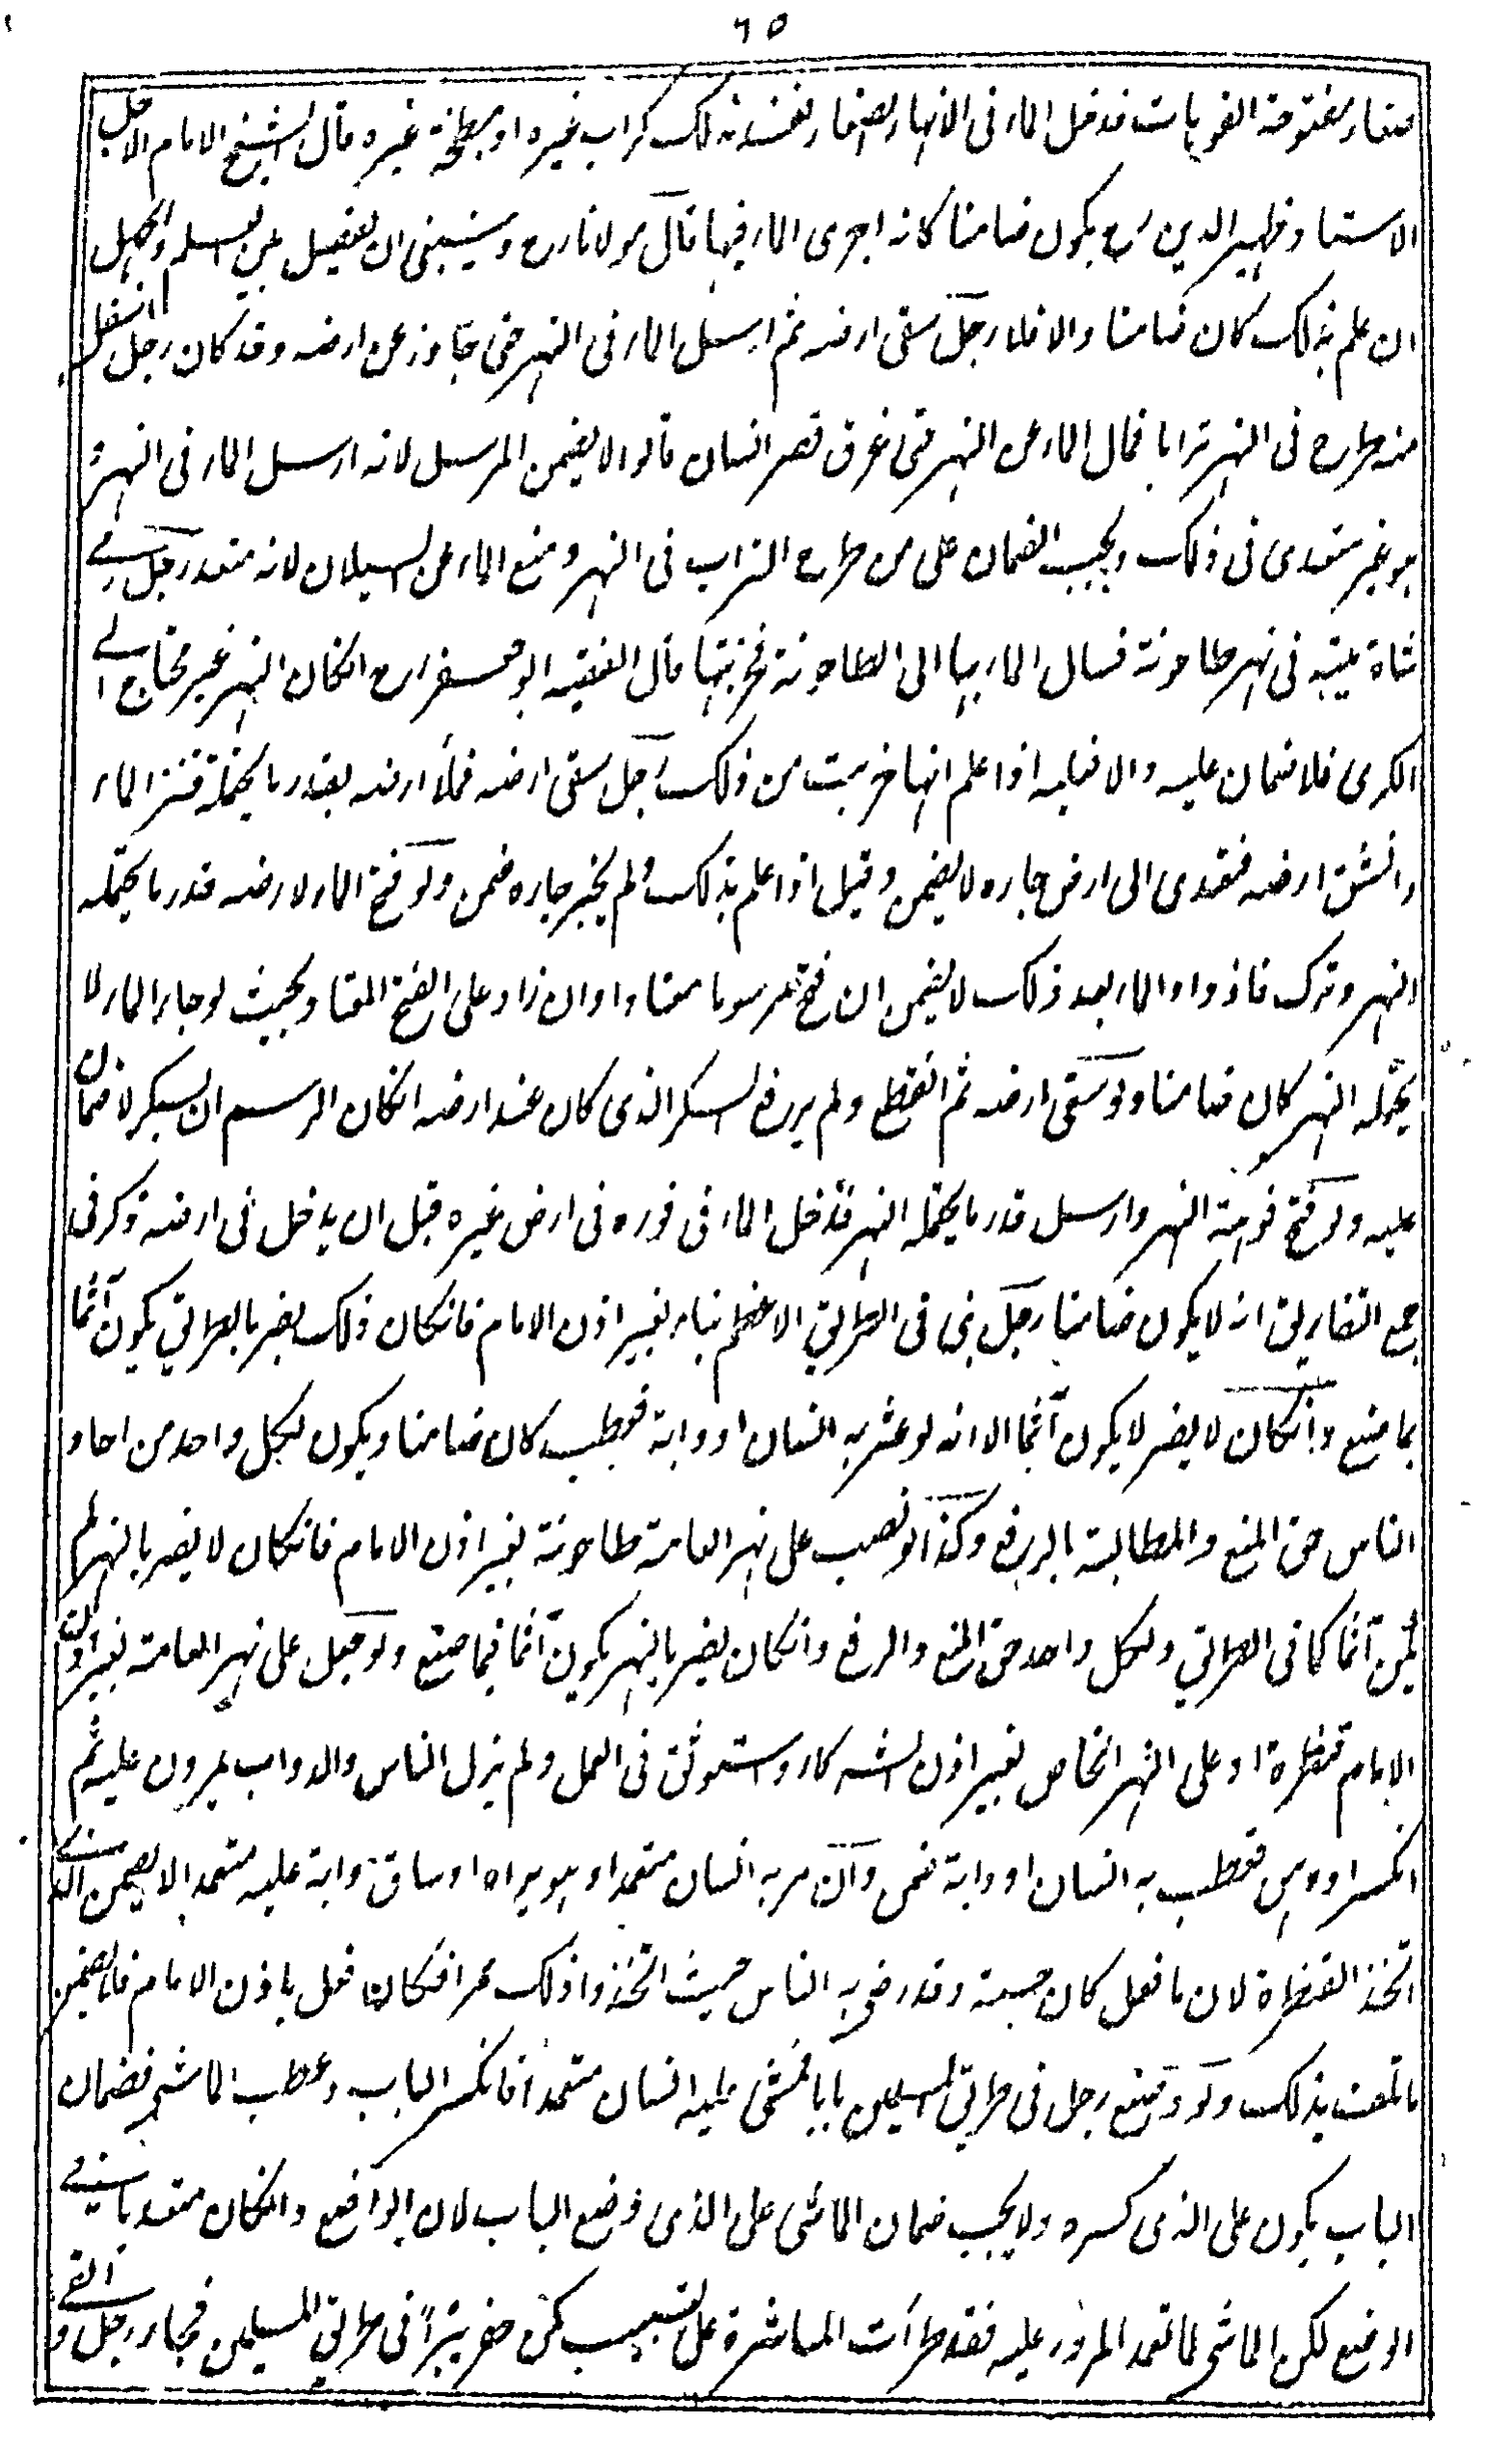 ٦٥
صغار مفتوحة الفوهات فدخل الماء فى الانهار الصغار ففسد بذلك كراب غيره او مبطخة غيره قال الشيخ الامام الاجل
الاستاذ ظهير الدين رح يكون ضامنا كانه اجرى الماء فيها قال مولانا رح وينبغى ان يفصل بين العلم والجهل
ان علم بذلك كان ضامنا والا فلا رجل سقى ارضه ثم ارسل الماء فى النهر حتى جاوز عن ارضه وقد كان رجل اسفل
منه طرح فى النهر ترابا فمال الماء عن النهر حتى غرق قصر انسان قالوا لا يضمن المرسل لانه ارسل الماء فى النهر و
هو غير متعدى فى ذلك ويجب الضمان على من طرح التراب فى النهر ومنع الماء عن السيلان لانه متعد رجل رمى
شاة ميتة فى نهر طاحونة فسال الماء بها الى الطاحونة فخربتها قال الفقيه ابو جعفر رح انكان النهر غير محتاج الى
الكرى فلا ضمان عليه والا فعليه اذا علم انها خربت من ذلك رجل سقى ارضه فملأ ارضه بقدر ما يحتمله فنز الماء
وانشق ارضه فتعدى الى ارض جاره لا يضمن وقيل اذا علم بذلك ولم يخبر جاره ضمن ولو فتح الماء لارضه قدر ما يحتمله
النهر وترك فازداد الماء بعد ذلك لا يضمن ان فتح مرسوما معتادا وان زاد على الفتح المعتاد بحيث لو جاء الماء لا
يحمله النهر كان ضامنا ولو سقى ارضه ثم انقطع ولم يرفع السكر الذى كان عند ارضه انكان الرسم ان يسكر لا ضمان
عليه ولو فتح فوهة النهر وارسل قدر ما يحتمله النهر فدخل الماء فى فوره فى ارض غيره قبل ان يدخل فى ارضه ذكر فى
جمع التفاريق انه لا يكون ضامنا رجل بنى فى الطريق الاعظم بناء بغير اذن الامام فانكان ذلك يضر بالطريق يكون آثما
بما صنع وانكان لا يضر لا يكون آثما الا انه لو عثر به انسان او دابة فعطب كان ضامنا ويكون لكل واحد من احاد
الناس حق المنع والمطالبة بالرفع وكذا لو نصب على نهر العامة طاحونة بغير اذن الامام فانكان لا يضر بالنهر لم
يكن آثما كما فى الطريق ولكل واحد حق المنع والرفع وانكان يضر بالنهر يكون آثما فيما صنع ولو جعل على نهر العامة بغير اذن
الامام قنطرة او على النهر الخاص بغير اذن الشركاء واستوثق فى العمل ولم يزل الناس والدواب يمرون عليه ثم
انكسر او وهى فعطب به انسان او دابة ضمن وان مر به انسان متعمدا وهو يراه او ساق دابة عليه متعمدا لا يضمن الذى
اتخذ القنطرة لان ما فعل كان حسبة وقد رضى به الناس حيث اتخذوا ذلك ممرا فكان فعل باذن الامام فلا يضمن
ما تلف بذلك ولو وضع رجل فى طريق المسلمين بابا فمشى عليه انسان متعمدا فانكسر الباب وعطب الماشى فضمان
الباب يكون على الذى كسره ولا يجب ضمان الماشى على الذى وضع الباب لان الواضع وانكان متعديا فى
الوضع لكن الماشى لما تعمد المرور عليه فقد طرأت المباشرة على التسبيب كمن حفر بئرا فى طريق المسلمين فجاء رجل والقى